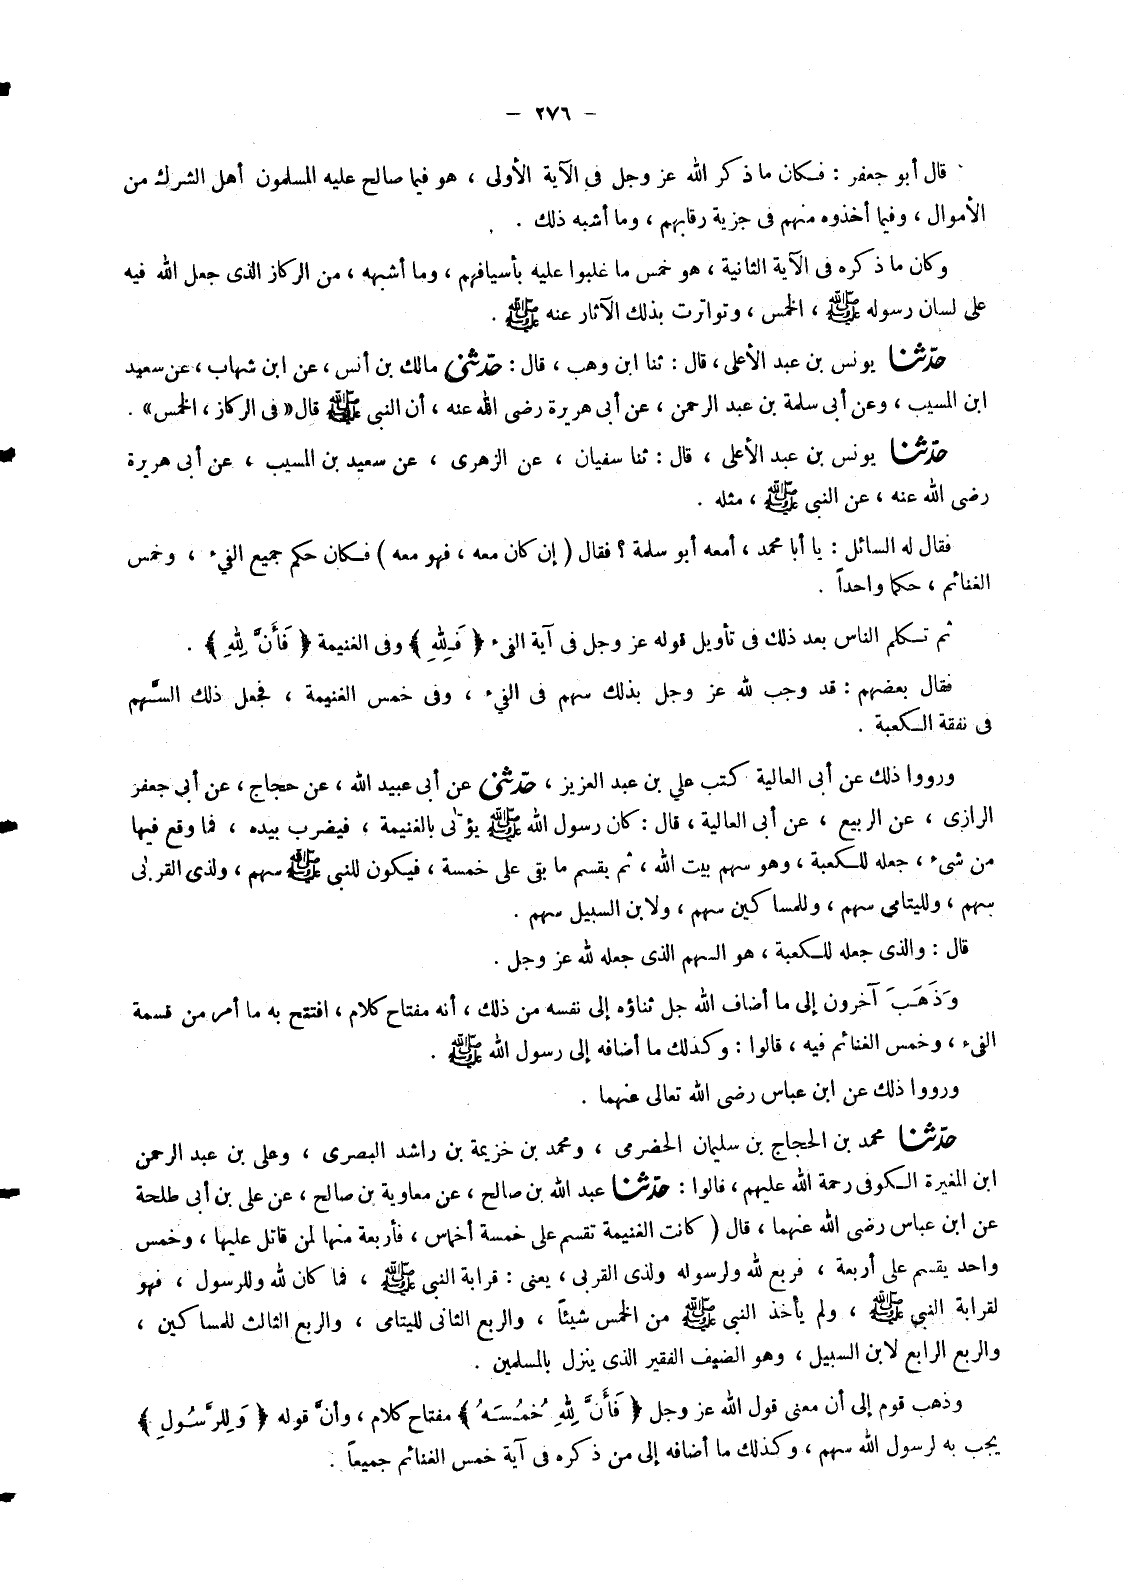 — ٢٧٦ —
قال أبو جعفر : فكان ما ذكر الله عز وجل فى الآية الأولى ، هو فيما صالح عليه المسلمون أهل الشرك من
الأموال ، وفيما أخذوه منهم فى جزية رقابهم ، وما أشبه ذلك .
وكان ما ذكره فى الآية الثانية ، هو خمس ما غلبوا عليه بأسيافهم ، وما أشبهه ، من الركاز الذى جعل الله فيه
على لسان رسوله ﷺ ، الخمس ، وتواترت بذلك الآثار عنه ﷺ .
حدّثنا يونس بن عبد الأعلى ، قال : ثنا ابن وهب ، قال : حدّثنى مالك بن أنس ، عن ابن شهاب ، عن سعيد
ابن المسيب ، وعن أبى سلمة بن عبد الرحمن ، عن أبى هريرة رضى الله عنه ، أن النبى ﷺ قال « فى الركاز ، الخمس » .
حدّثنا يونس بن عبد الأعلى ، قال : ثنا سفيان ، عن الزهرى ، عن سعيد بن المسيب ، عن أبى هريرة
رضى الله عنه ، عن النبى ﷺ ، مثله .
فقال له السائل : يا أبا محمد ، أمعه أبو سلمة ؟ فقال ( إن كان معه ، فهو معه ) فكان حكم جميع الفىء ، وخمس
الغنائم ، حكما واحداً .
ثم تكلم الناس بعد ذلك فى تأويل قوله عز وجل فى آية الفىء ﴿ فَلِلّٰهِ ﴾ وفى الغنيمة ﴿ فَأَنَّ لِلّٰهِ ﴾ .
فقال بعضهم : قد وجب لله عز وجل بذلك سهم فى الفىء ، وفى خمس الغنيمة ، فجعل ذلك السَّهم
فى نفقة الكعبة .
ورووا ذلك عن أبى العالية كتب علي بن عبد العزيز ، حدّثنى عن أبى عبيد الله ، عن حجاج ، عن أبي جعفر
الرازى ، عن الربيع ، عن أبى العالية ، قال : كان رسول الله ﷺ يؤتى بالغنيمة ، فيضرب بيده ، فما وقع فيها
من شىء ، جعله للكعبة ، وهو سهم بيت الله ، ثم يقسم ما بقى على خمسة ، فيكون للنبى ﷺ سهم ، ولذى القربى
سهم ، ولليتامى سهم ، وللمساكين سهم ، ولابن السبيل سهم .
قال : والذى جعله للكعبة ، هو السهم الذى جعله لله عز وجل .
وَذَهَبَ آخرون إلى ما أضاف الله جل ثناؤه إلى نفسه من ذلك ، أنه مفتاح كلام ، افتتح به ما أمر من قسمة
الفىء ، وخمس الغنائم فيه ، قالوا : وكذلك ما أضافه إلى رسول الله ﷺ .
ورووا ذلك عن ابن عباس رضى الله تعالى عنهما .
حدّثنا محمد بن الحجاج بن سليمان الحضرمى ، ومحمد بن خزيمة بن راشد البصرى ، وعلى بن عبد الرحمن
ابن المغيرة الكوفى رحمة الله عليهم ، قالوا : حدّثنا عبد الله بن صالح ، عن معاوية بن صالح ، عن على بن أبى طلحة
عن ابن عباس رضى الله عنهما ، قال ( كانت الغنيمة تقسم على خمسة أخماس ، فأربعة منها لمن قاتل عليها ، وخمس
واحد يقسم على أربعة ، فربع لله ولرسوله ولذى القربى ، يعنى : قرابة النبى ﷺ ، فما كان لله وللرسول ، فهو
لقرابة النبي ﷺ ، ولم يأخذ النبى ﷺ من الخمس شيئاً ، والربع الثانى لليتامى ، والربع الثالث للمساكين ،
والربع الرابع لابن السبيل ، وهو الضيف الفقير الذى ينزل بالمسلمين .
وذهب قوم إلى أن معنى قول الله عز وجل ﴿ فَأَنَّ لِلّٰهِ خُمُسَهُ ﴾ مفتاح كلام ، وأنَّ قوله ﴿ وَلِلرَّسُولِ ﴾
يجب به لرسول الله سهم ، وكذلك ما أضافه إلى من ذكره فى آية خمس الغنائم جميعاً .